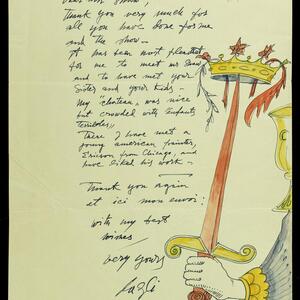 Thank you very much for
all you have done for me
and the show –
It has been most pleasant
for me to meet
and to have met your
Sister and your kids –
My "chateau" was nice
but crowded with "enfants
terribles"
There I have met a
young american painter,
Ericson from Chicago, and
have liked his work –
Thank you again
et ici mon envoi:
with my best
wishes
very yours